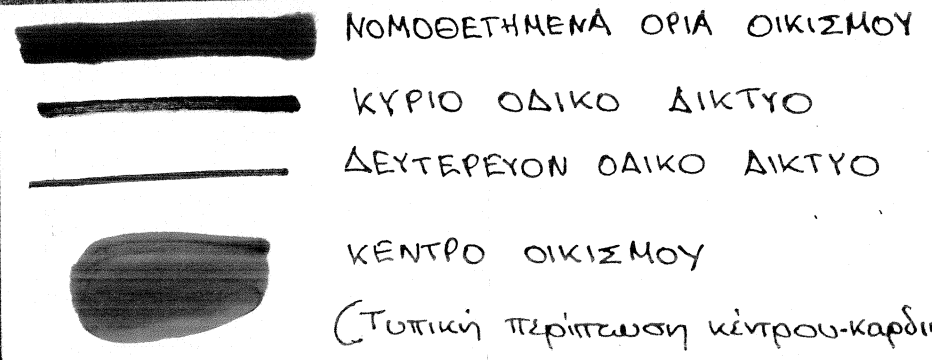 ΝΟΜΟΘΕΤΗΜΕΝΑ ΟΡΙΑ ΟΙΚΙΣΜΟΥ
ΚΥΡΙΟ ΟΔΙΚΟ ΔΙΚΤΥΟ
ΔΕΥΤΕΡΕΥΟΝ ΟΔΙΚΟ ΔΙΚΤΥΟ
ΚΕΝΤΡΟ ΟΙΚΙΣΜΟΥ
(Τυπική περίπτωση κέντρου-